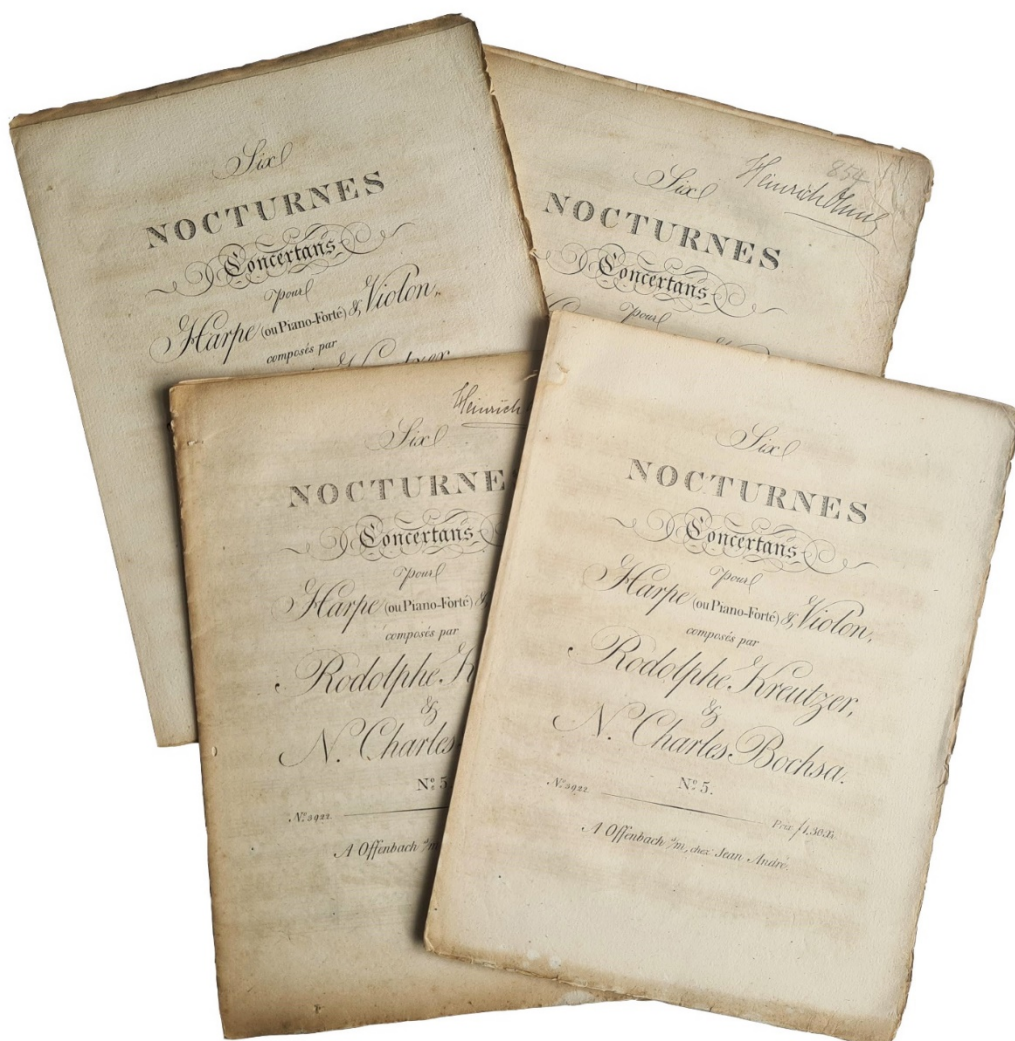 Six
NOCTURNES
Concertans
pour
Harpe (ou Piano-Forté) & Violon,
composés par
854
Heinrich
Six
NOCTURNES
Concertans
pour
Heinrich
Six
NOCTURNE
Concertans
pour
Harpe (ou Piano-Forté)
composés par
Rodolphe K
&
N. Charles
Nº 5.
Nº 3922.
A Offenbach s/m
Six
NOCTURNES
Concertans
pour
Harpe (ou Piano-Forté) & Violon,
composés par
Rodolphe Kreutzer,
&
N. Charles Bochsa.
Nº 5.
Nº 3922. Prix f 1,30 Xr.
A Offenbach s/m, chez Jean André.